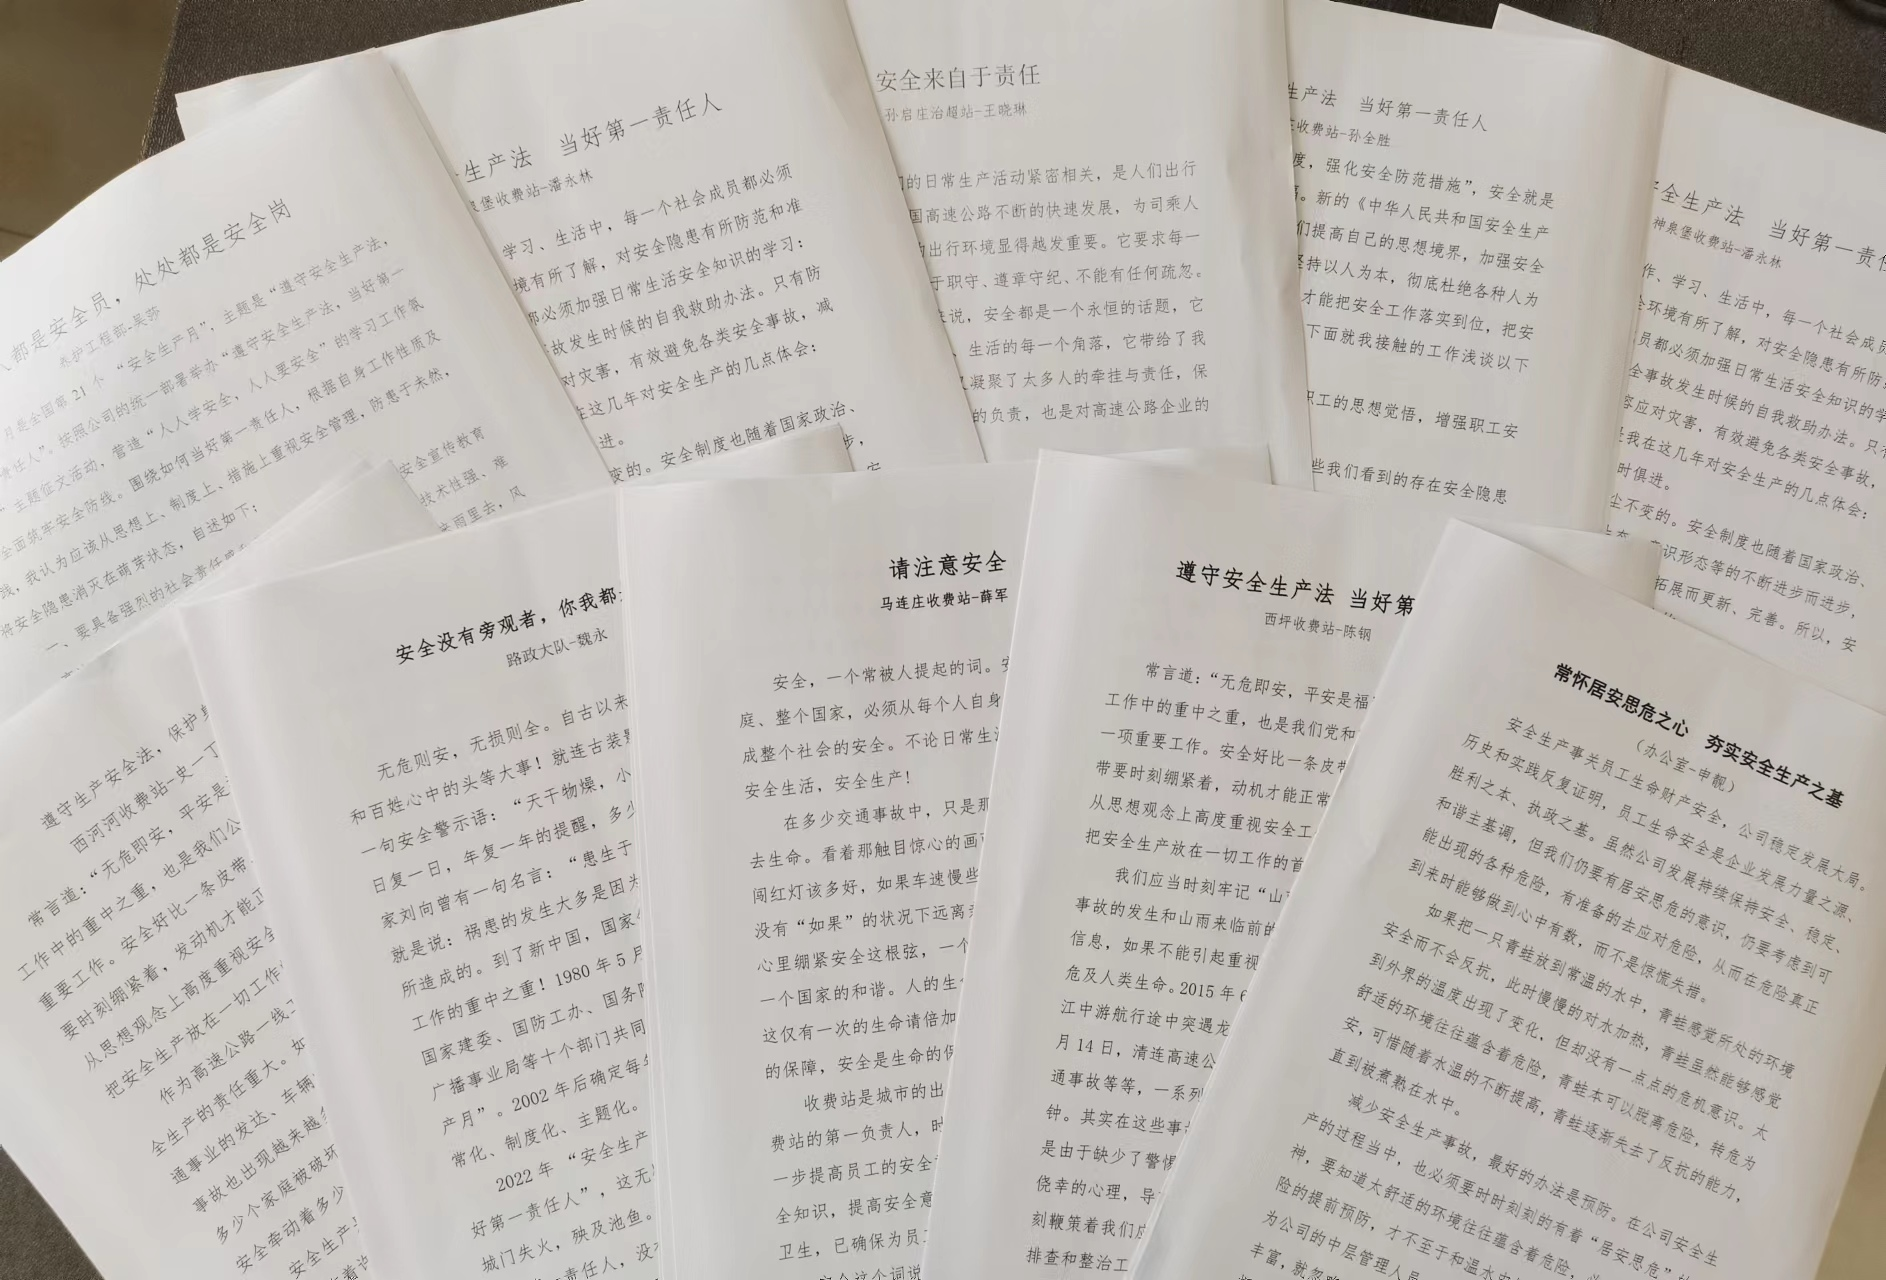 都是安全员，处处都是安全岗
养护工程部-吴莎
月是全国第21个“安全生产月”，主题是“遵守安全生产法，
责任人”。按照公司的统一部署举办“遵守安全生产法，当好第一
”主题征文活动，营造“人人学安全，人人要安全”的学习工作氛
全面筑牢安全防线。围绕如何当好第一责任人，根据自身工作性质及
浅，我认为应该从思想上、制度上、措施上重视安全管理，防患于未然，
将安全隐患消灭在萌芽状态，自述如下：
一、要具备强烈的社会责任感
安全宣传教育
技术性强、难
来雨里去，风
生产法 当好第一责任人
泉堡收费站-潘永林
学习、生活中，每一个社会成员都必须
境有所了解，对安全隐患有所防范和准
都必须加强日常生活安全知识的学习：
故发生时候的自我救助办法。只有防
对灾害，有效避免各类安全事故，减
在这几年对安全生产的几点体会：
进。
变的。安全制度也随着国家政治、
步，
安全来自于责任
孙启庄治超站-王晓琳
的日常生产活动紧密相关，是人们出行
国高速公路不断的快速发展，为司乘人
出行环境显得越发重要。它要求每一
于职守、遵章守纪、不能有任何疏忽。
来说，安全都是一个永恒的话题，它
、生活的每一个角落，它带给了我
凝聚了太多人的牵挂与责任，保
的负责，也是对高速公路企业的
生产法 当好第一责任人
收费站-孙全胜
度，强化安全防范措施”，安全就是
。新的《中华人民共和国安全生产
们提高自己的思想境界，加强安全
坚持以人为本，彻底杜绝各种人为
才能把安全工作落实到位，把安
下面就我接触的工作浅谈以下
职工的思想觉悟，增强职工安
些我们看到的存在安全隐患
安全生产法 当好第一责任
神泉堡收费站-潘永林
作、学习、生活中，每一个社会成员
全环境有所了解，对安全隐患有所防
员都必须加强日常生活安全知识的学
全事故发生时候的自我救助办法。只有
容应对灾害，有效避免各类安全事故，
是我在这几年对安全生产的几点体会：
时俱进。
尘不变的。安全制度也随着国家政治、
意识形态等的不断进步而进步，
拓展而更新、完善。所以，安
遵守生产安全法，保护
西河河收费站-史一丁
常言道：“无危即安，平安是
工作中的重中之重，也是我们公
重要工作。安全好比一条皮带
要时刻绷紧着，发动机才能正
从思想观念上高度重视安全
把安全生产放在一切工作
作为高速公路一线
全生产的责任重大。如
通事业的发达、车辆
事故也出现越来越
多少个家庭被破坏
安全牵动着多少
安全生产
安全没有旁观者，你我都
路政大队-魏永
无危则安，无损则全。自古以来
和百姓心中的头等大事！就连古装
一句安全警示语：“天干物燥，小
日复一日，年复一年的提醒，多少
家刘向曾有一句名言：“患生于
就是说：祸患的发生大多是因为
所造成的。到了新中国，国家
工作的重中之重！1980年5月
国家建委、国防工办、国务院
广播事业局等十个部门共同
产月”。2002年后确定每
常化、制度化、主题化。
2022年“安全生产
好第一责任人”，这无
城门失火，殃及池鱼。
责任人，没
请注意安全
马连庄收费站-薛军
安全，一个常被人提起的词。安
庭、整个国家，必须从每个人自身
成整个社会的安全。不论日常生
安全生活，安全生产！
在多少交通事故中，只是那
去生命。看着那触目惊心的画
闯红灯该多好，如果车速慢些
没有“如果”的状况下远离
心里绷紧安全这根弦，一个
一个国家的和谐。人的生
这仅有一次的生命请倍加
的保障，安全是生命的保
收费站是城市的出
费站的第一负责人，时
一步提高员工的安全
全知识，提高安全意
卫生，已确保为员工
安全这个词说
遵守安全生产法 当好第
西坪收费站-陈钢
常言道：“无危即安，平安是福
工作中的重中之重，也是我们党和
一项重要工作。安全好比一条皮带
带要时刻绷紧着，动机才能正常
从思想观念上高度重视安全工
把安全生产放在一切工作的首
我们应当时刻牢记“山
事故的发生和山雨来临前的
信息，如果不能引起重视
危及人类生命。2015年6
江中游航行途中突遇龙
月14日，清连高速公
通事故等等，一系列
钟。其实在这些事
是由于缺少了警惕
侥幸的心理，导
刻鞭策着我们应
排查和整治工
常怀居安思危之心 夯实安全生产之基
（办公室-申靓）
安全生产事关员工生命财产安全，公司稳定发展大局。
历史和实践反复证明，员工生命安全是企业发展力量之源、
胜利之本、执政之基。虽然公司发展持续保持安全、稳定、
和谐主基调，但我们仍要有居安思危的意识，仍要考虑到可
能出现的各种危险，有准备的去应对危险，从而在危险真正
到来时能够做到心中有数，而不是惊慌失措。
如果把一只青蛙放到常温的水中，青蛙感觉所处的环境
安全而不会反抗，此时慢慢的对水加热，青蛙虽然能够感觉
到外界的温度出现了变化，但却没有一点点的危机意识。太
舒适的环境往往蕴含着危险，青蛙本可以脱离危险，转危为
安，可惜随着水温的不断提高，青蛙逐渐失去了反抗的能力，
直到被煮熟在水中。
减少安全生产事故，最好的办法是预防。在公司安全生
产的过程当中，也必须要时时刻刻的有着“居安思危”
神，要知道太舒适的环境往往蕴含着危险，
险的提前预防，才不至于和温水
为公司的中层管理人员
丰富，就忽